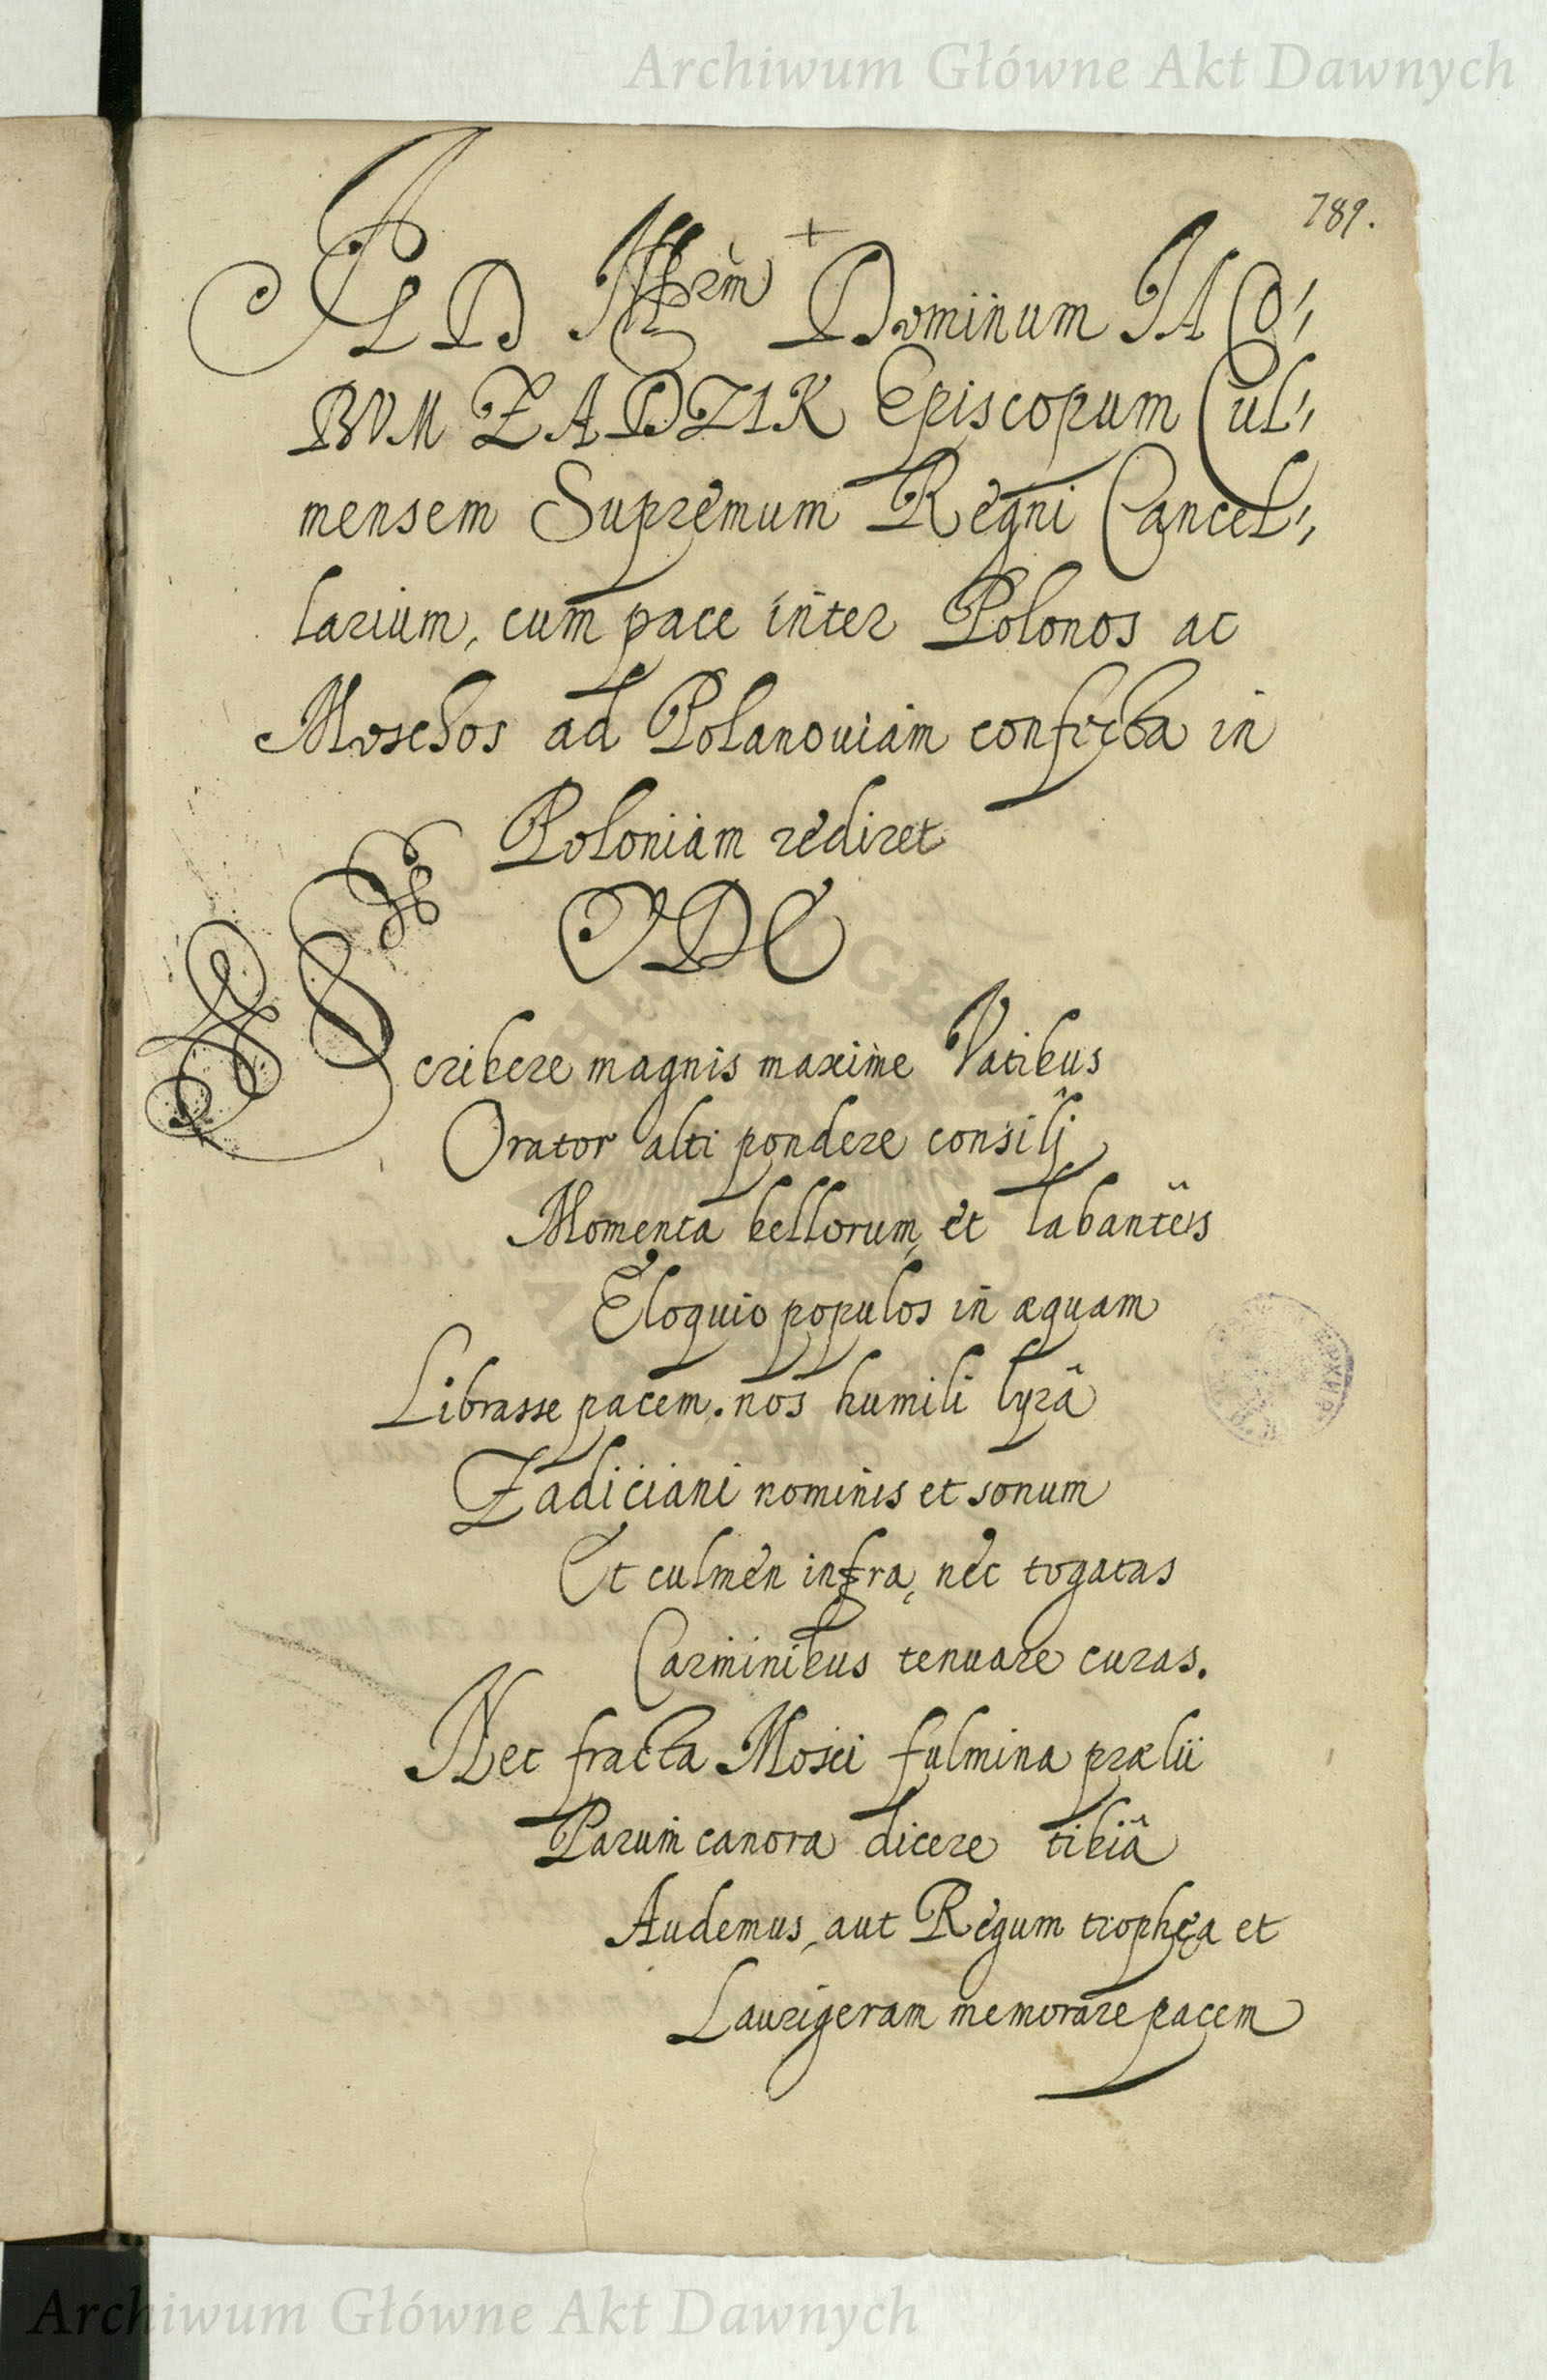 Archiwum Główne Akt Dawnych
789.
+
AD Illrm Dominum IACO,,
BVM ZADZIK Episcopum Cul,,
mensem Supremum Regni Cancel,,
larium, cum pace inter Polonos ac
Moschos ad Polanouiam confecta in
Poloniam rediret
ODE
Scribere magnis maxime Vatibus
Orator alti pondere consilij
Momenta bellorum, et labanteis
Eloquio populos in æquam
Librasse pacem. nos humili lyrâ
Zadiciani nominis et sonum
Et culmen infra, nec togatas
Carminibus tenuare curas.
Nec fracta Mosci fulmina prælii
Parum canora dicere tibiâ
Audemus, aut Regum trophęa et
Laurigeram memorare pacem
Archiwum Główne Akt Dawnych